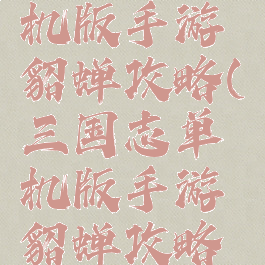 机版手游
貂蝉攻略(
三国志单
机版手游
貂蝉攻略